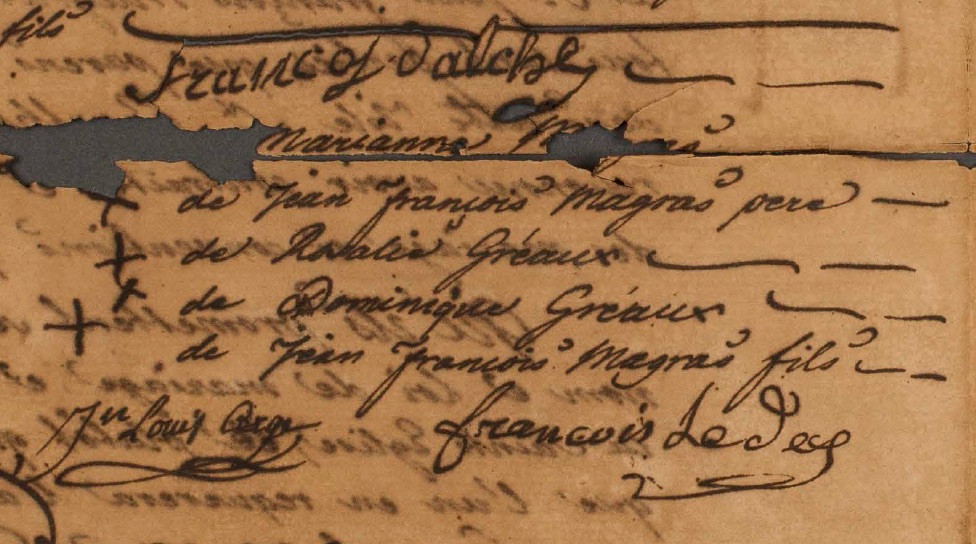 fils
francois dalche
Marianne Magras
+ de Jean François Magras pere
+ de Rosalie Gréaux
+ de Dominique Gréaux
+ de Jean François Magras fils
Jn Louis
francois Le